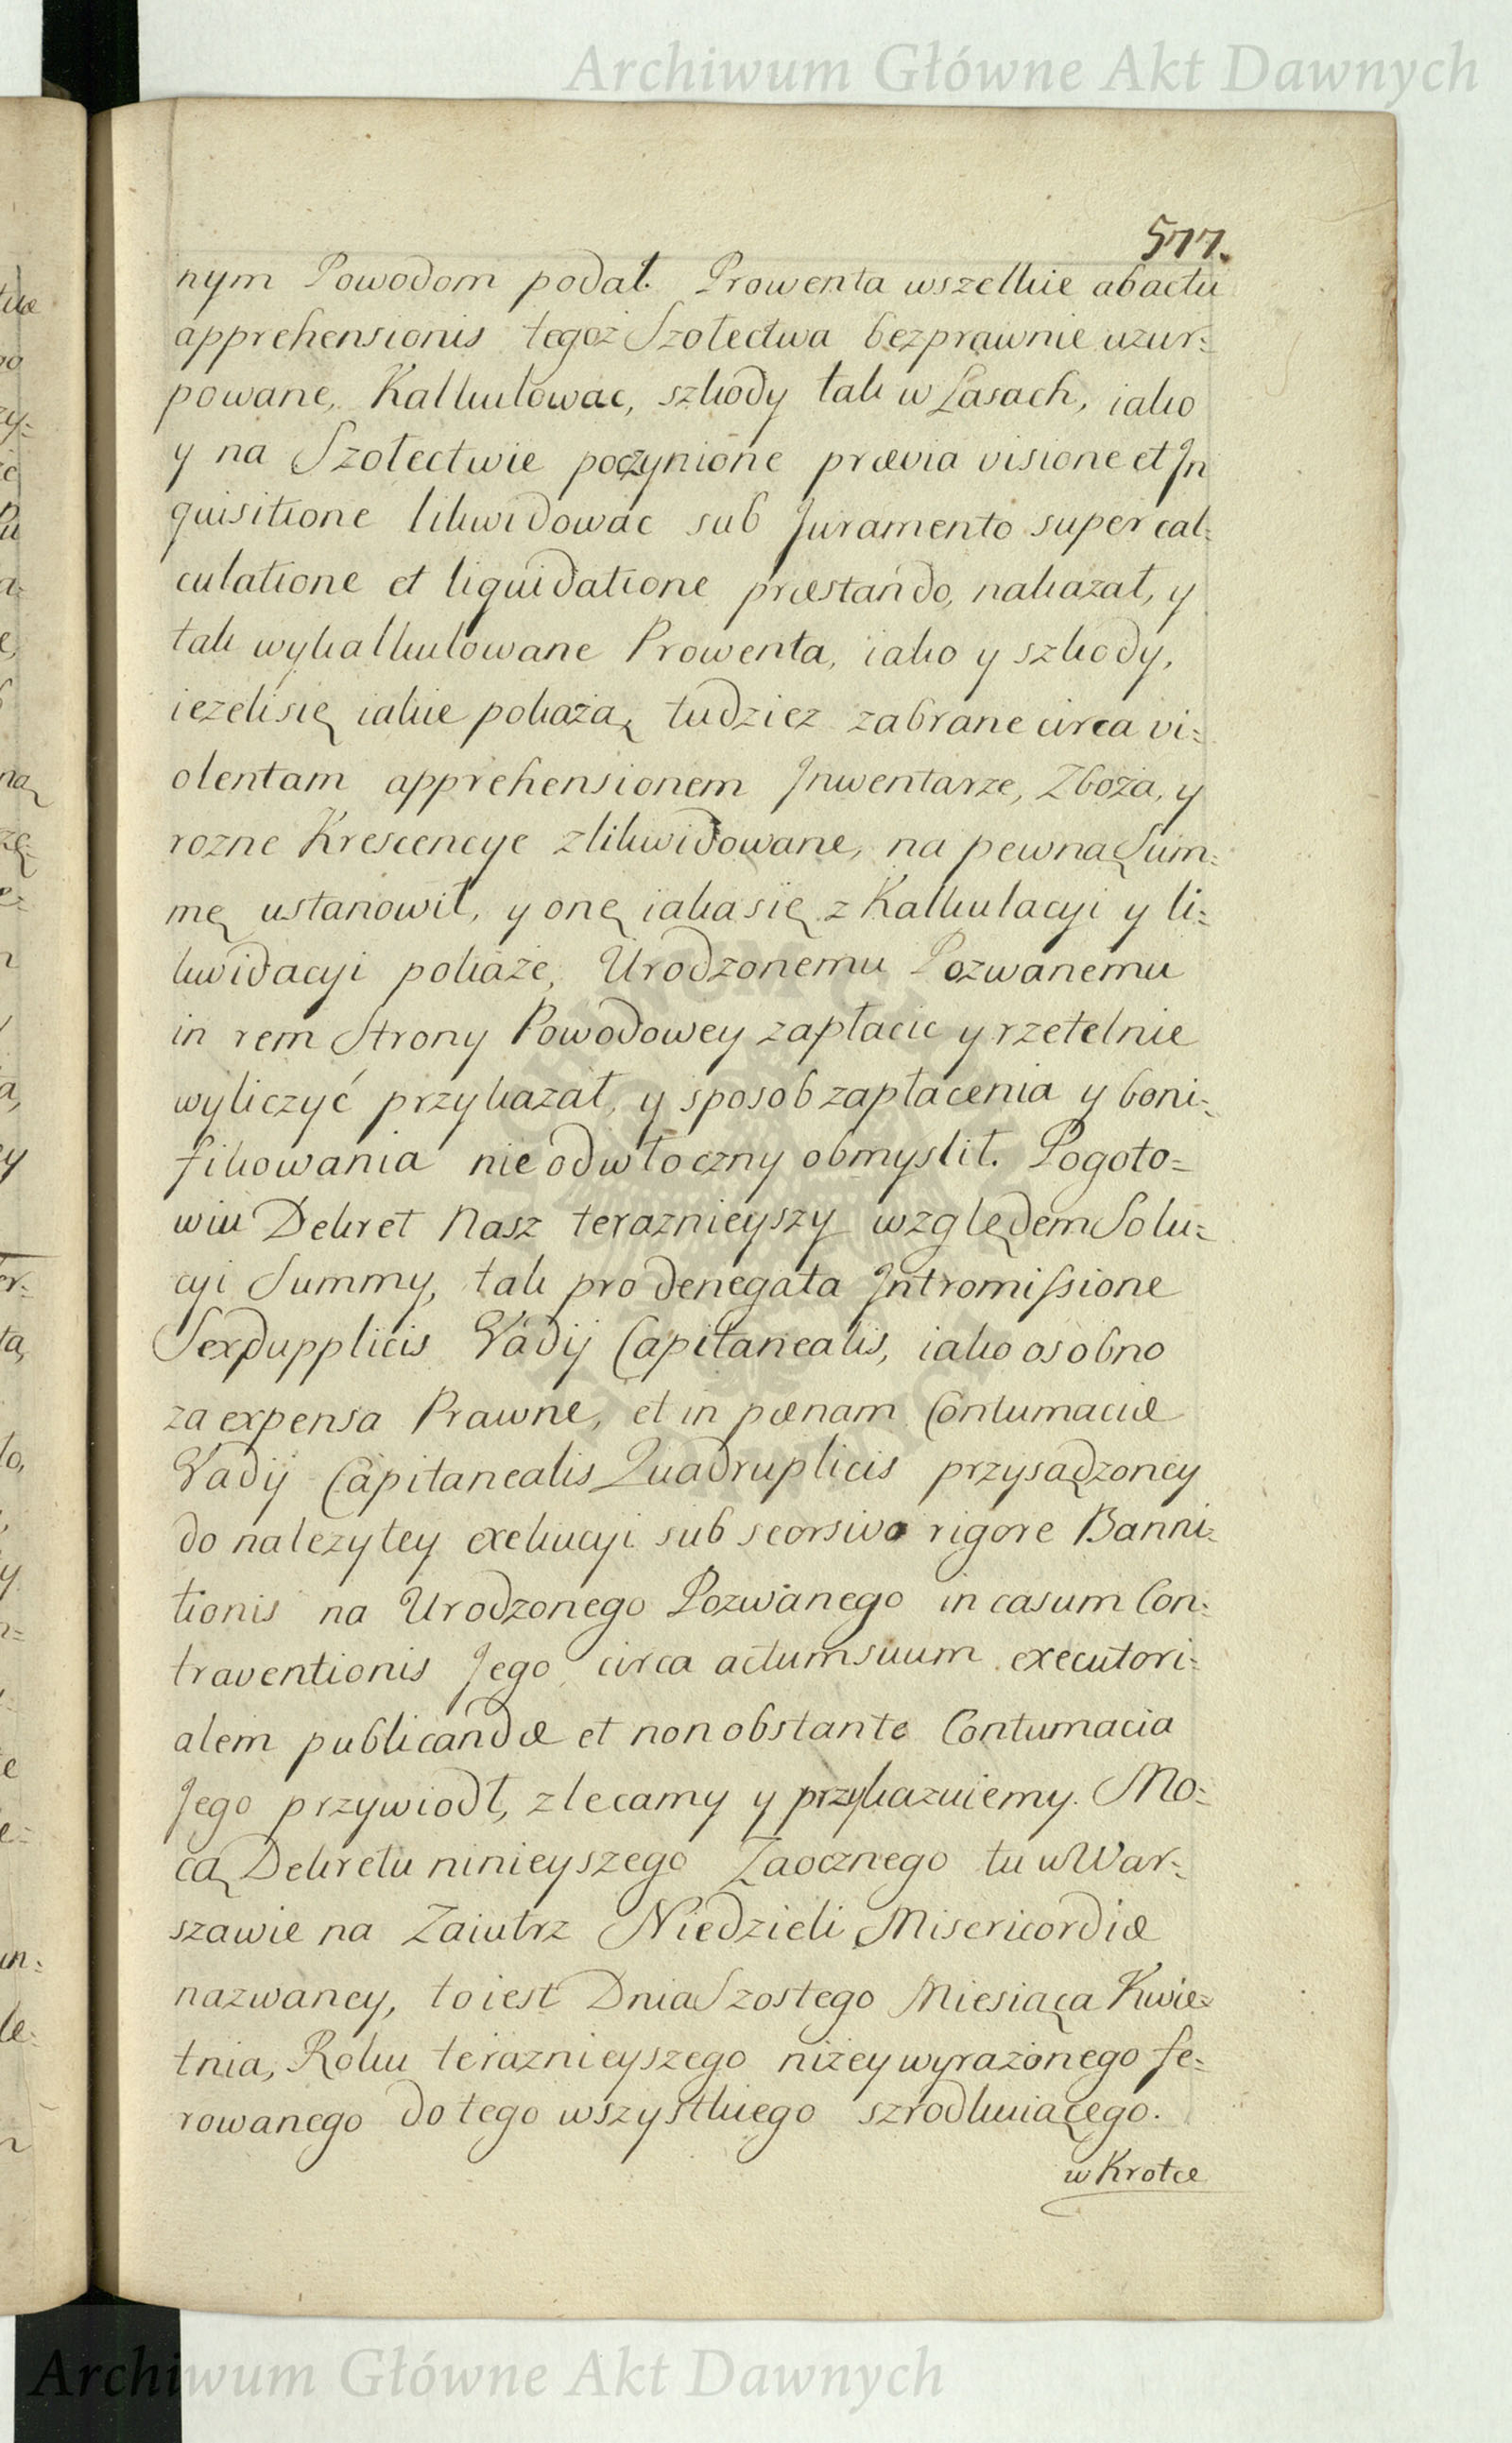 Archiwum Główne Akt Dawnych
577.
nym Powodom podał. Prowenta wszelkie ab actu
apprehensionis tegoż Szołectwa bezprawnie uzur=
powane, Kalkulowac, szkody tak w Lasach, iako
y na Szołectwie poczynione prævia visione et In
quisitione likwidowac sub Juramento super cal=
culatione et liquidatione præstando, nakazał, y
tak wykalkulowane Prowenta, iako y szkody,
iezeli się iakie pokażą, tudziez zabrane circa vi=
olentam apprehensionem Inwentarze, Zboża, y
rozne Krescencye zlikwidowane, na pewną Sum=
mę ustanowił, y onę iaka się z Kalkulacyi y li=
kwidacyi pokaże, Urodzonemu Pozwanemu
in rem Strony Powodowey zapłacic y rzetelnie
wyliczyć przykazał, y sposob zapłacenia y boni=
fikowania nieodwłoczny obmyslił. Pogoto=
wiu Dekret Nasz teraznieyszy względem Solu=
cyi Summy, tak pro denegata Intromissione
Sexdupplicis Vadij Capitanealis, iako osobno
za expensa Prawne, et in pœnam Contumaciæ
Vadij Capitanealis Quadruplicis przysądzoney
do nalezytey exekucyi sub seorsivo rigore Banni=
tionis na Urodzonego Pozwanego in casum Con=
traventionis Jego circa actum suum executori=
alem publicandæ et non obstante Contumacia
Jego przywiodł, zlecamy y przykazuiemy. Mo=
cą Dekretu ninieyszego Zaocznego tu w War=
szawie na Zaiutrz Niedzieli Misericordiæ
nazwaney, to iest Dnia Szostego Miesiąca Kwie=
tnia, Roku teraznieyszego niżey wyrażonego fe=
rowanego do tego wszystkiego szrodkuiącego.
w Krotce
Archiwum Główne Akt Dawnych